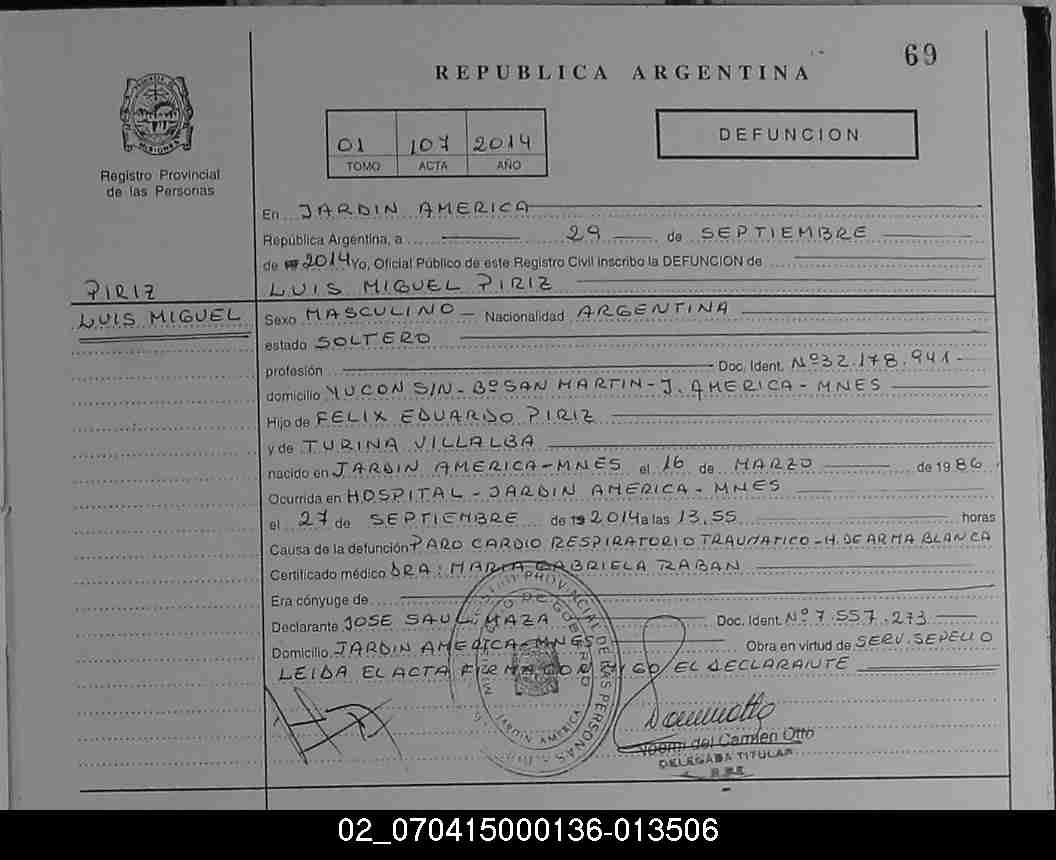 69
REPUBLICA ARGENTINA
01 107 2014
TOMO ACTA AÑO
DEFUNCION
MISIONES
Registro Provincial
de las Personas
En JARDIN AMERICA
República Argentina, a 29 de SEPTIEMBRE
de 2014 Yo, Oficial Público de este Registro Civil inscribo la DEFUNCION de
PIRIZ
LUIS MIGUEL
LUIS MIGUEL PIRIZ
Sexo MASCULINO Nacionalidad ARGENTINA
estado SOLTERO
profesión Doc. Ident. Nº 32.178.941-
domicilio YUCON S/N-BºSAN MARTIN-J. AMERICA-MNES
Hijo de FELIX EDUARDO PIRIZ
y de TURINA VILLALBA
nacido en JARDIN AMERICA-MNES el 16 de MARZO de 1986
Ocurrida en HOSPITAL-JARDIN AMERICA-MNES
el 27 de SEPTIEMBRE de 19 2014 a las 13,55 horas
Causa de la defunción PARO CARDIO RESPIRATORIO TRAUMATICO-H. DE ARMA BLANCA
Certificado médico DRA: MARIA GABRIELA RABAN
Era cónyuge de
Declarante JOSE SAUL MAZA Doc. Ident. Nº 7.557.273
Domicilio JARDIN AMERICA-MNES Obra en virtud de SERV. SEPELIO
LEIDA EL ACTA FIRMA CONMIGO EL DECLARANTE
REGISTRO PROVINCIAL DE LAS PERSONAS
MINISTERIO DE GOBIERNO
JARDIN AMERICA
Noemi del Carmen Otto
DELEGADA TITULAR
02_070415000136-013506